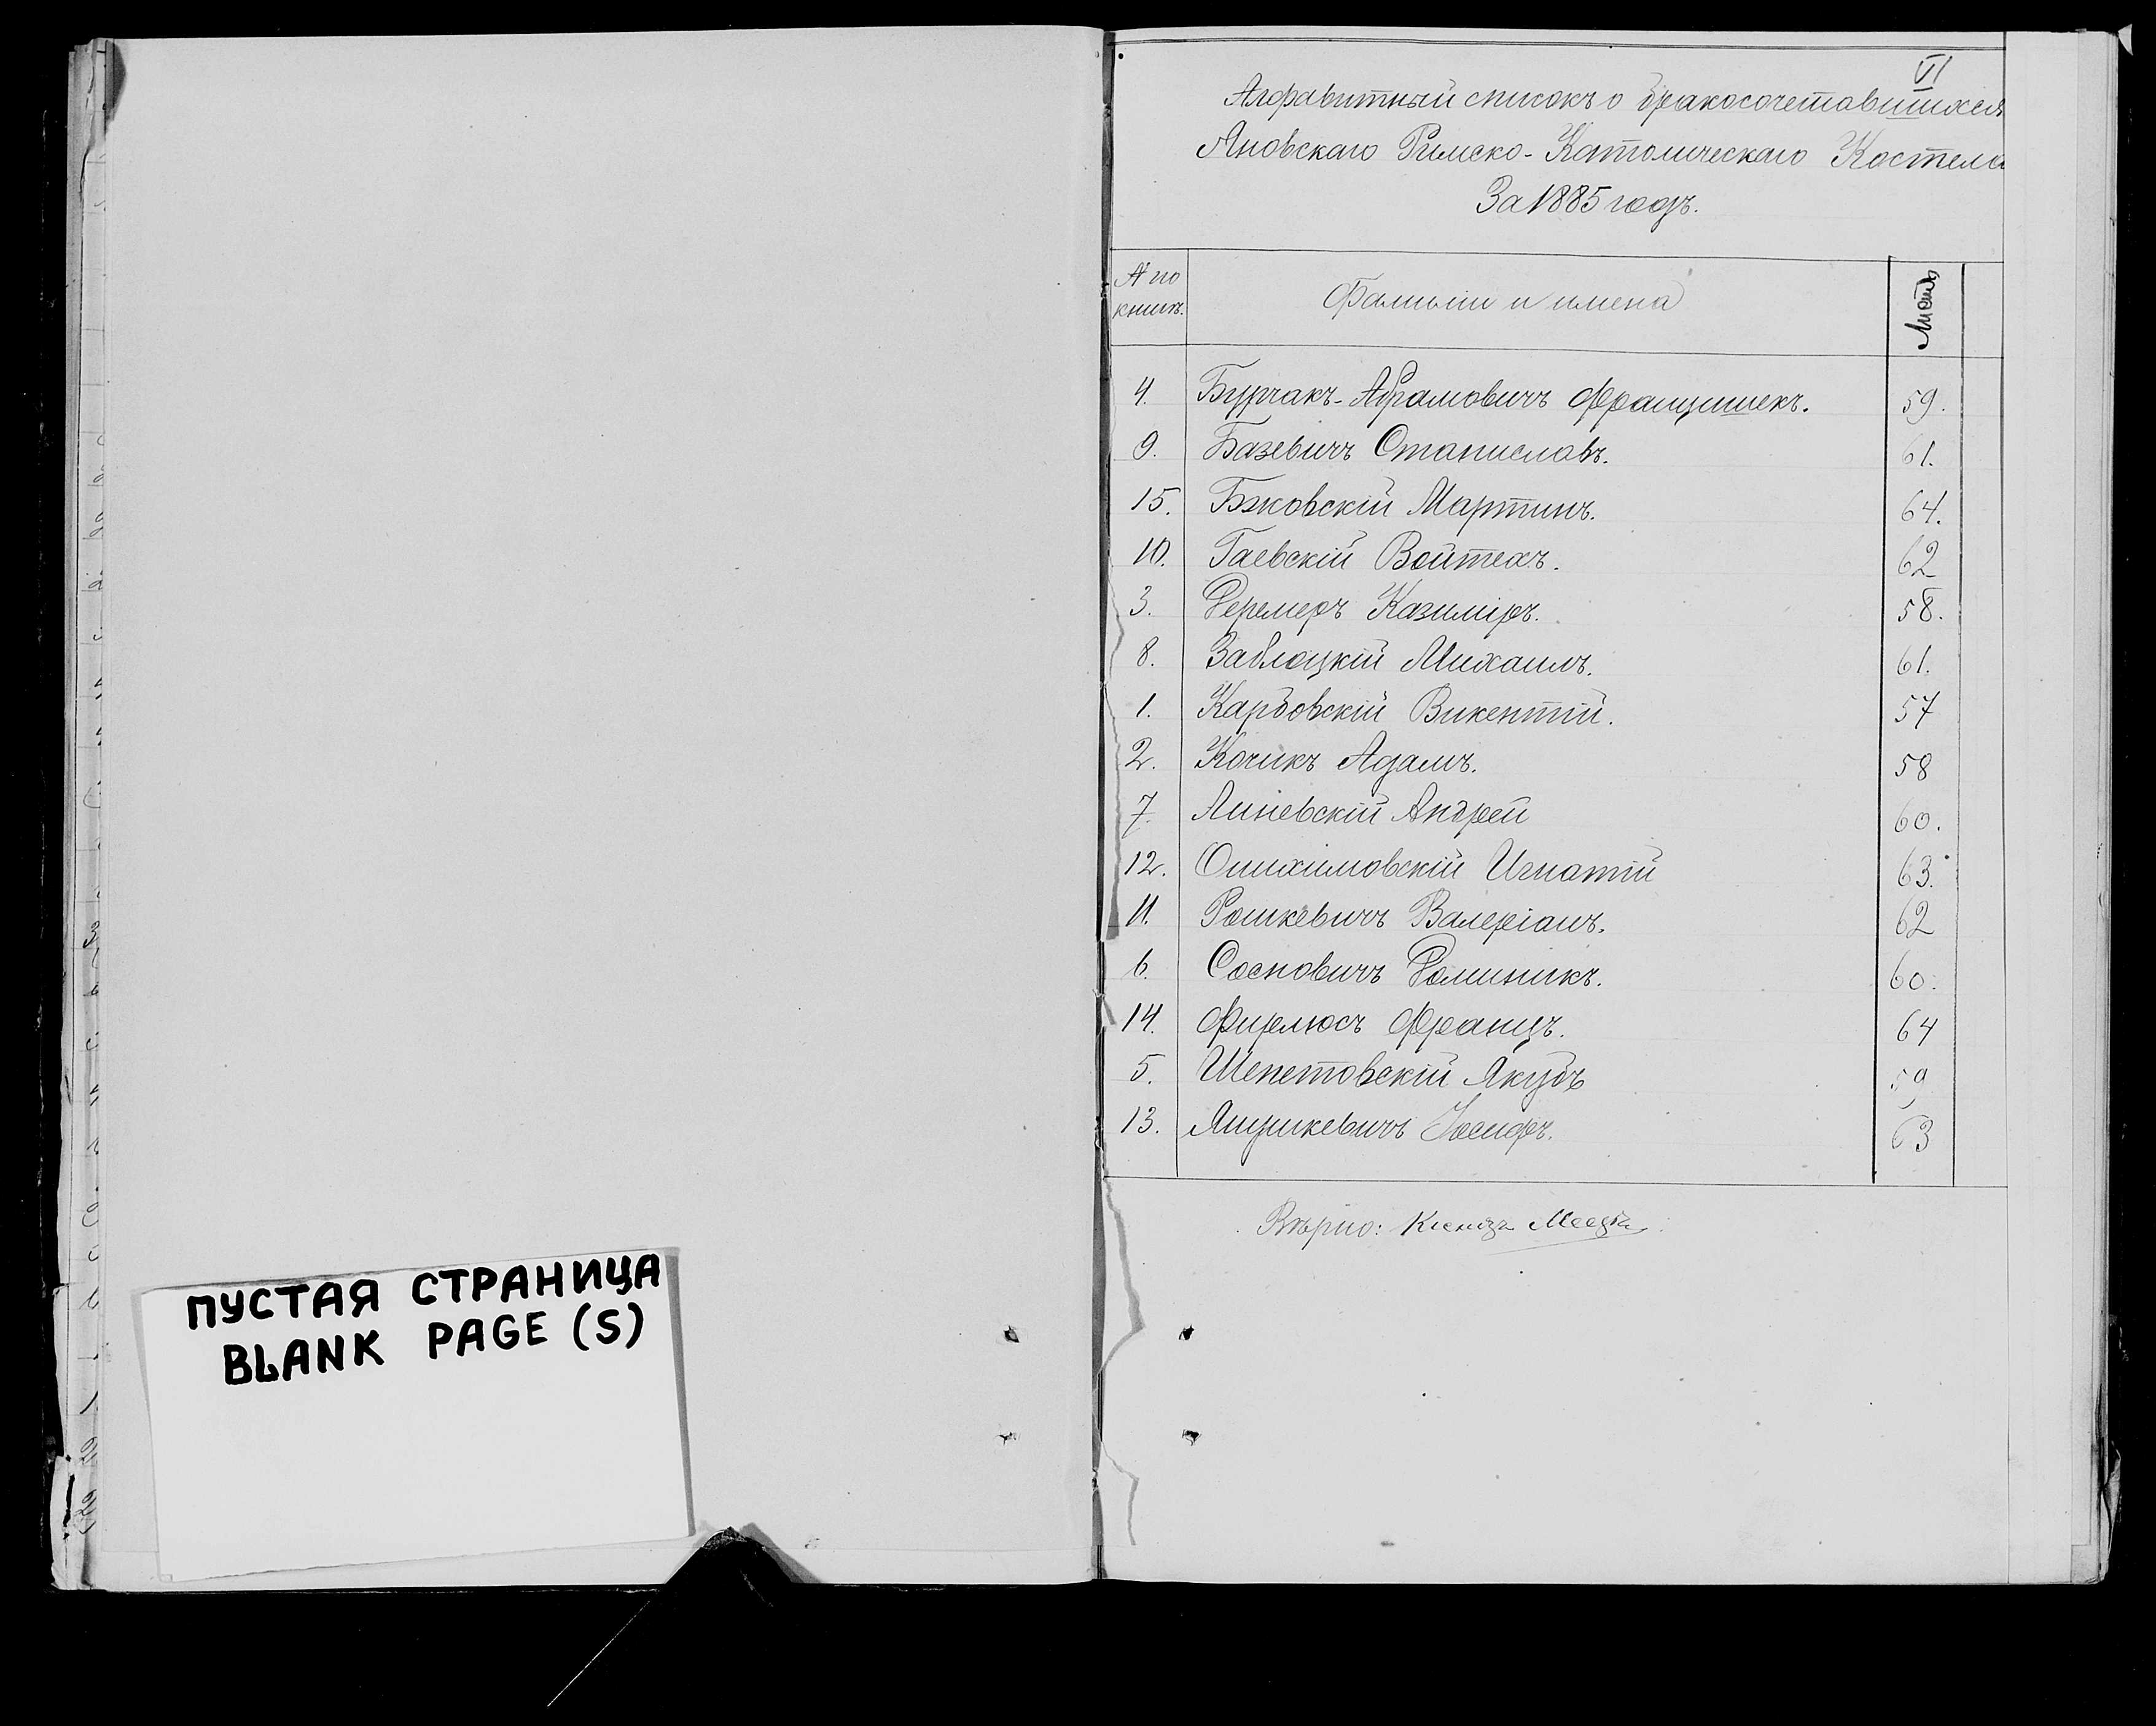 ПУСТАЯ СТРАНИЦА
BLANK PAGE (S)
VI
Алфавитный списокъ о бракосочетавшихся
Яновскаго Римско-Католическаго Костела
За 1885 годъ.
№ по книгѣ. Фамиліи и имена Листъ
4. Бурчакъ-Абрамовичъ Францишекъ. 59.
9. Базевичъ Станиславъ. 61.
15. Бжовскій Мартинъ. 64.
10. Гаевскій Войтехъ. 62
3. Деремеръ Казиміръ. 58.
8. Заблоцкій Михаилъ. 61.
1. Карбовскій Викентій. 57
2. Кочикъ Адамъ. 58
7. Линевскій Андрей 60.
12. Игнатій 63.
11. Рошкевичъ Валеріанъ. 62
6. Сосновичъ Доминикъ. 60.
14. Фирлюсъ Францъ. 64
5. Шепетовскій Якубъ 59
13. Іосифъ. 63
Вѣрно: Ксендзъ